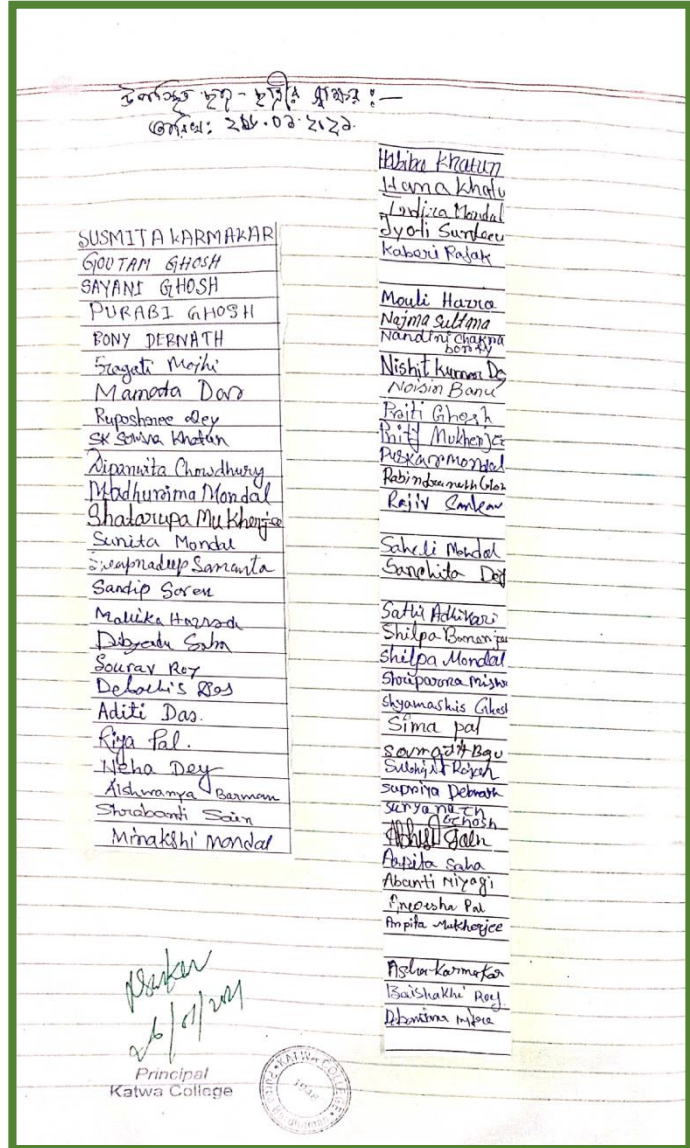 উপস্থিত ছাত্র - ছাত্রীর স্বাক্ষর :—
তারিখ: ২৬.০১.২০২১
SUSMITA KARMAKAR
GOUTAM GHOSH
SAYANI GHOSH
PURABI GHOSH
PONY DEBNATH
Sragati Mojhi
Mamata Das
Ruposhree Dey
SK Sovina Khatun
Dipanwita Chowdhury
Madhurima Mondal
Shatarupa Mukherjee
Sunita Mondal
Swapnadeep Samanta
Sandip Soren
Mallika Hazra
Dibyendu Saha
Sourav Roy
Debachis Das
Aditi Das.
Riya Pal.
Neha Dey
Aishwarya Barman
Shrabanti Sain
Minakshi Mondal
Habiba Khatun
Hama Khatu
Indira Mondal
Jyoti Sundar
Kaberi Rajak
Mouli Hazra
Najma Sultana
Nandini Chakra
borty
Nishit Kumar Da
Noisin Banu
Priti Ghosh
Priti Mukherjee
Puskar Mondal
Rabindranath Ghos
Rajiv Sarkar
Saheli Mondal
Sanchita Dey
Sathi Adhikari
Shilpa Banerjee
Shilpa Mondal
Shriparna Mishra
Shyamashis Ghosh
Sima pal
Soumajit Bag
Subhijit Rajak
Supriya Debnath
Surya nath
Ghosh
Abhijit Sain
Arpita Saha
Abanti Niyogi
Pal
Arpita Mukherjee
Asha Karmakar
Baishakhi Roy.
26/01/2021
Principal
Katwa College
KATWA COLLEGE
1948